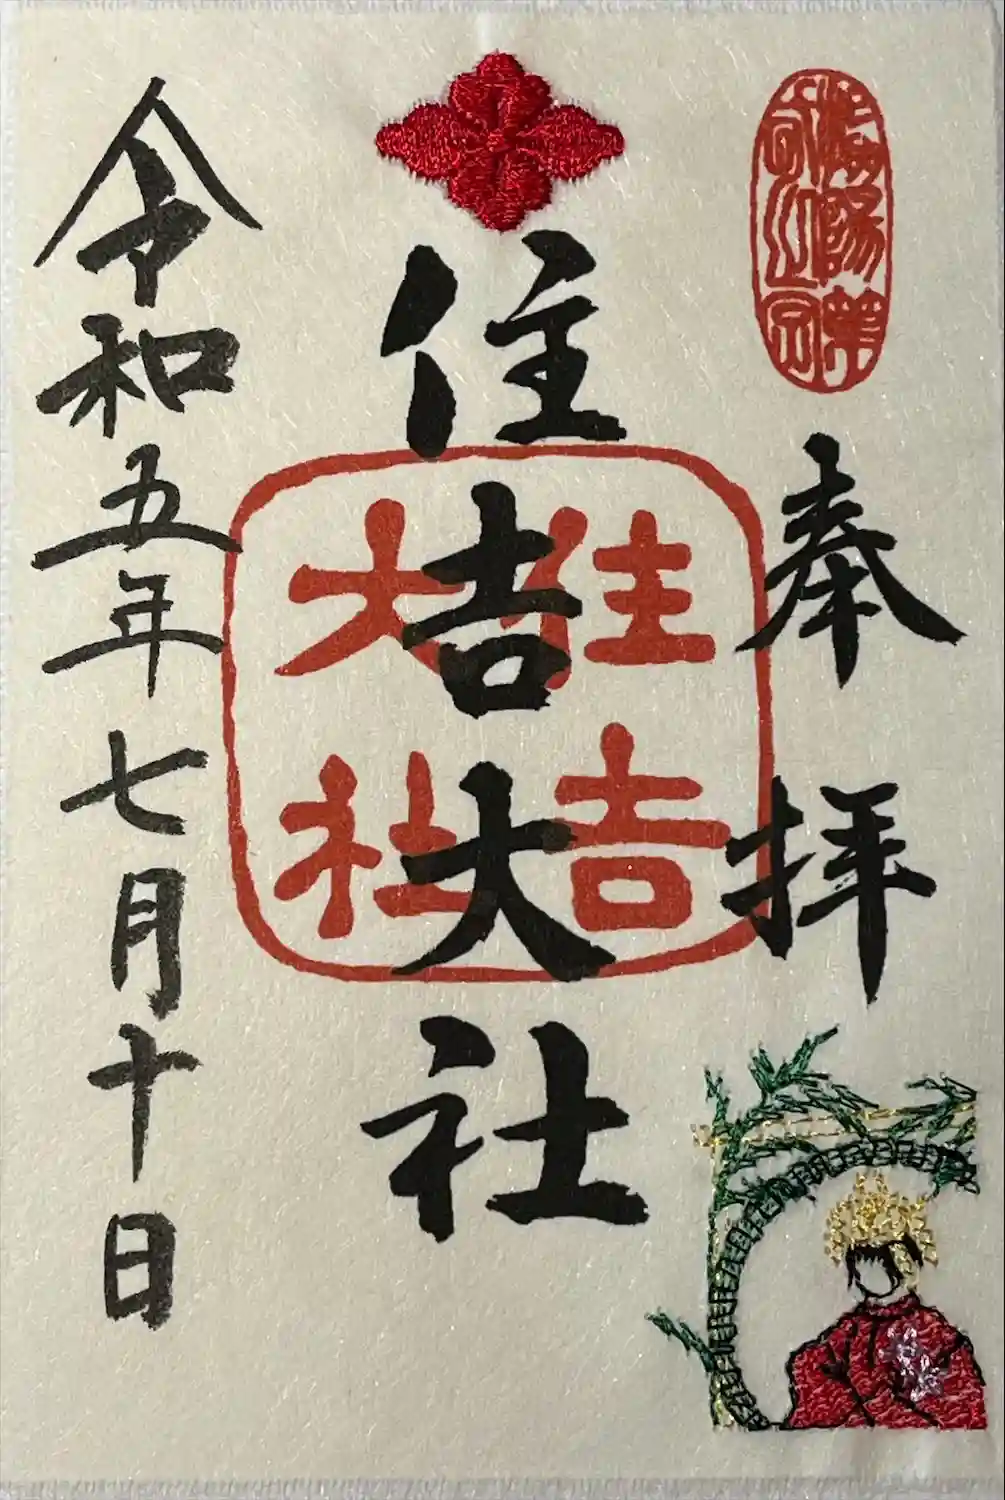 奉拝
住吉大社
住吉
大社
令和五年七月十日